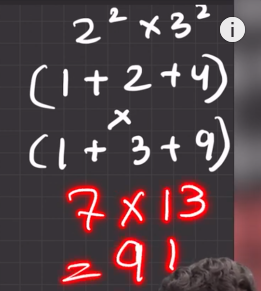 2² × 3²
(1 + 2 + 4)
×
(1 + 3 + 9)
7 × 13
= 91